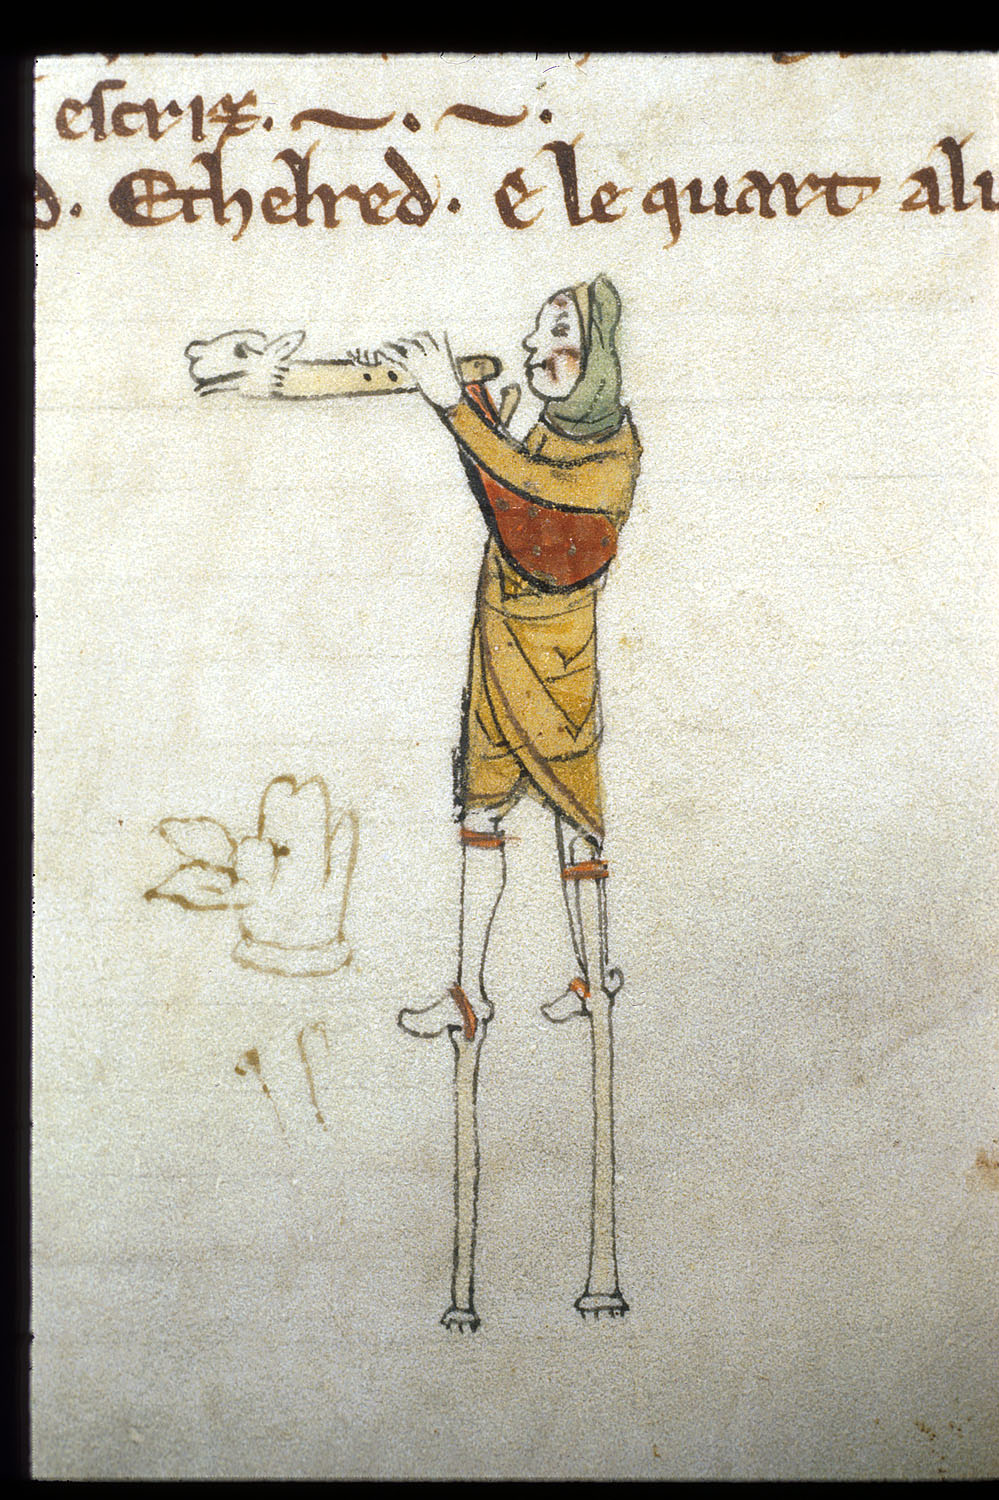 escriz.
d. Ethelred. E le quart alu